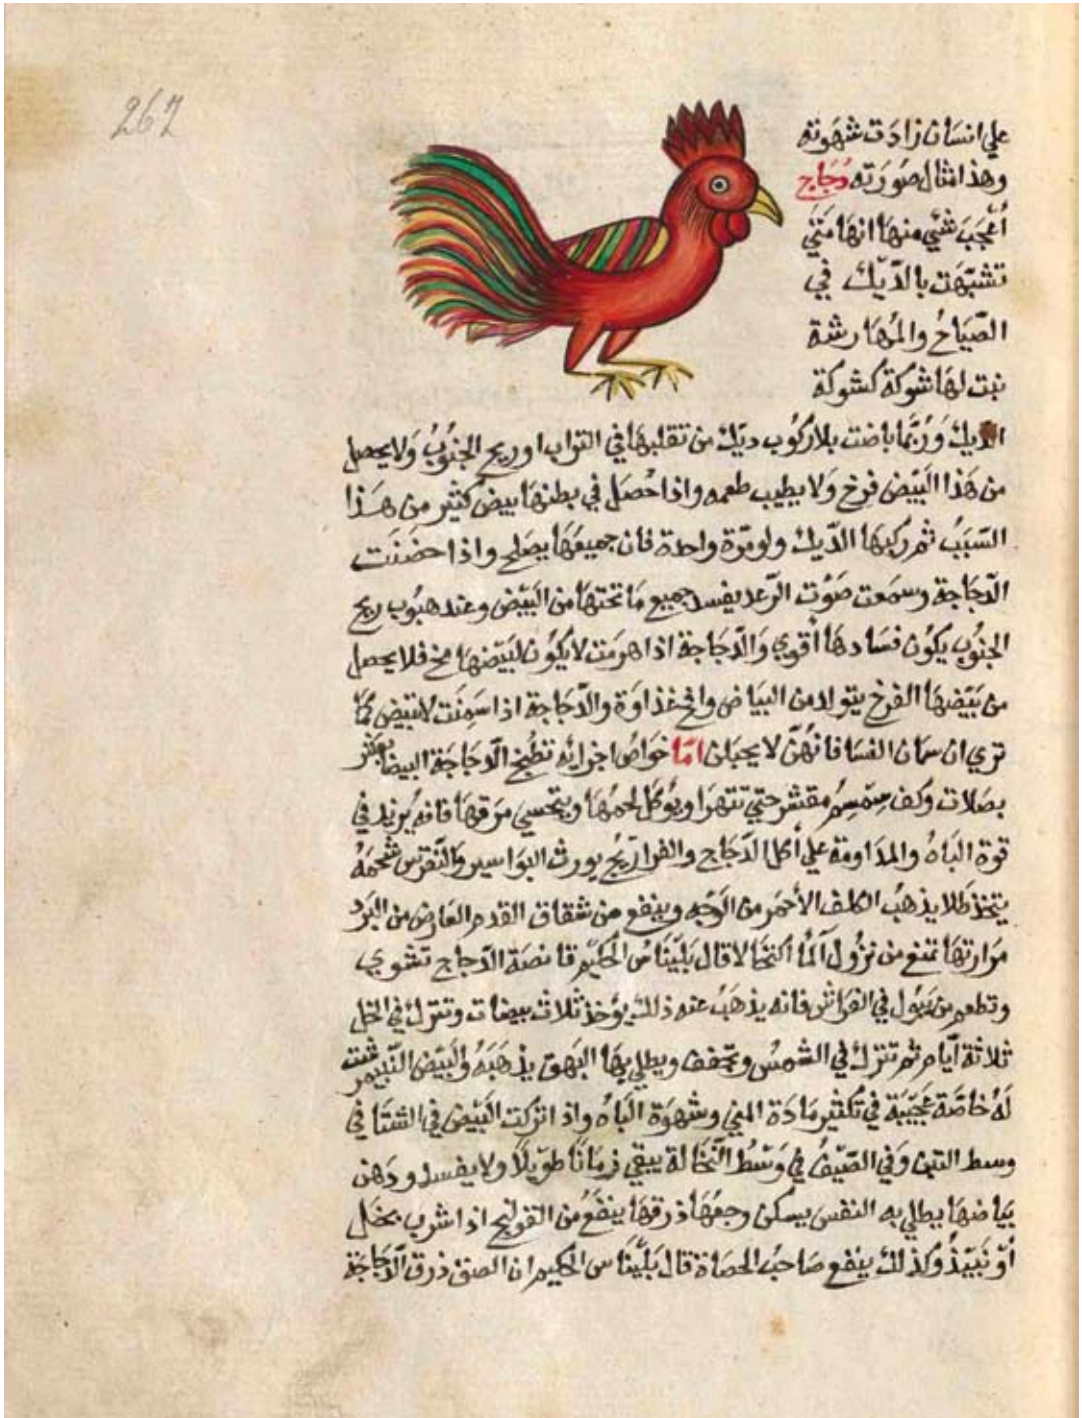 267
علي انسان زادت شهوته
وهذا مثال صورته دجاج
أعجب شئ منها انها متي
تشبهت بالديك في
الصياح والمهارشة
نبت لها شوكة كشوكة
الديك وربما باضت بلا ركوب ديك من تقلبها في التراب او ريح الجنوب ولا يحصل
من هذا البيض فرخ ولا يطيب طعمه واذا حصل في بطنها بيض كثير من هذا
السبب ثم ركبها الديك ولو مرة واحدة فان جميعها يصلح واذا حضنت
الدجاجة وسمعت صوت الرعد يفسد جميع ما تحتها من البيض وعند هبوب ريح
الجنوب يكون فسادها أقوي والدجاجة اذا هرمت لا يكون لبيضها مخ فلا يحصل
من بيضها الفرخ يتولد من البياض والمخ غذاوة والدجاجة اذا سمنت لا تبيض كما
تري ان سمان النسا فانهن لا يحبلن اما خواص اجزائه تطبخ الدجاجة البيضا بعشر
بصلات وكف سمسم مقشر حتي تتهرا ويؤكل لحمها ويتحسي مرقها فانه يزيد في
قوة الباه والمداومة علي أكل الدجاج والفراريج يورث البواسير والنقرس شحمه
يتخذ طلا يذهب الكلف الأحمر من الوجه وينفع من شقاق القدم العارض من البرد
مرارتها تمنع من نزول ألما اكتحالا قال بليناس الحكيم قانصة الدجاج تشوي
وتطعم من يبول في الفراش فانه يذهب عنه ذلك يؤخذ ثلاث بيضات وتترك في الخل
ثلاثة أيام ثم تترك في الشمس وتجفف ويطلي بها البهق يذهبه والبيض النيمرشت
له خاصة عجيبة في تكثير مادة المني وشهوة الباه واذا تركت البيض في الشتا في
وسط التبن وفي الصيف في وسط النخالة يبقي زمانا طويلا ولا يفسد ودهن
بياضها يطلي به النقس يسكن وجعها ذرقها ينفع من القولنج اذا شرب بخل
أو نبيذ وكذلك ينفع صاحب الحصاة قال بليناس الحكيم ان الصق ذرق الدجاجة